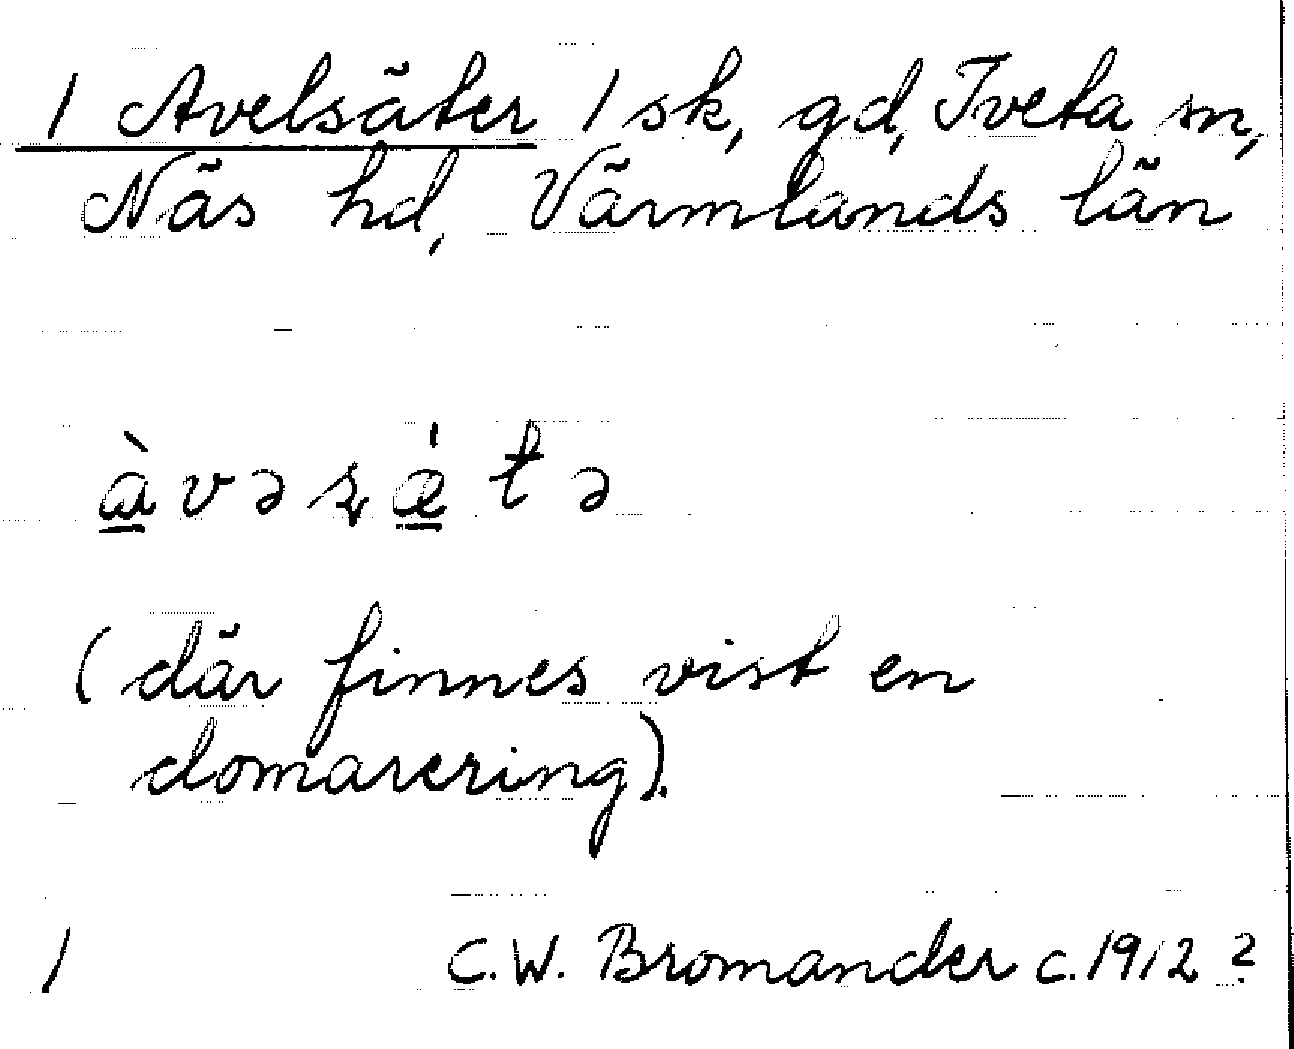 / Avelsäter / sk, gd, Tveta sn,
Näs hd, Värmlands län
à̱vəsǽ̱tə
(där finnes vist en
domarering).
/ C.W. Bromander c. 1912 ?